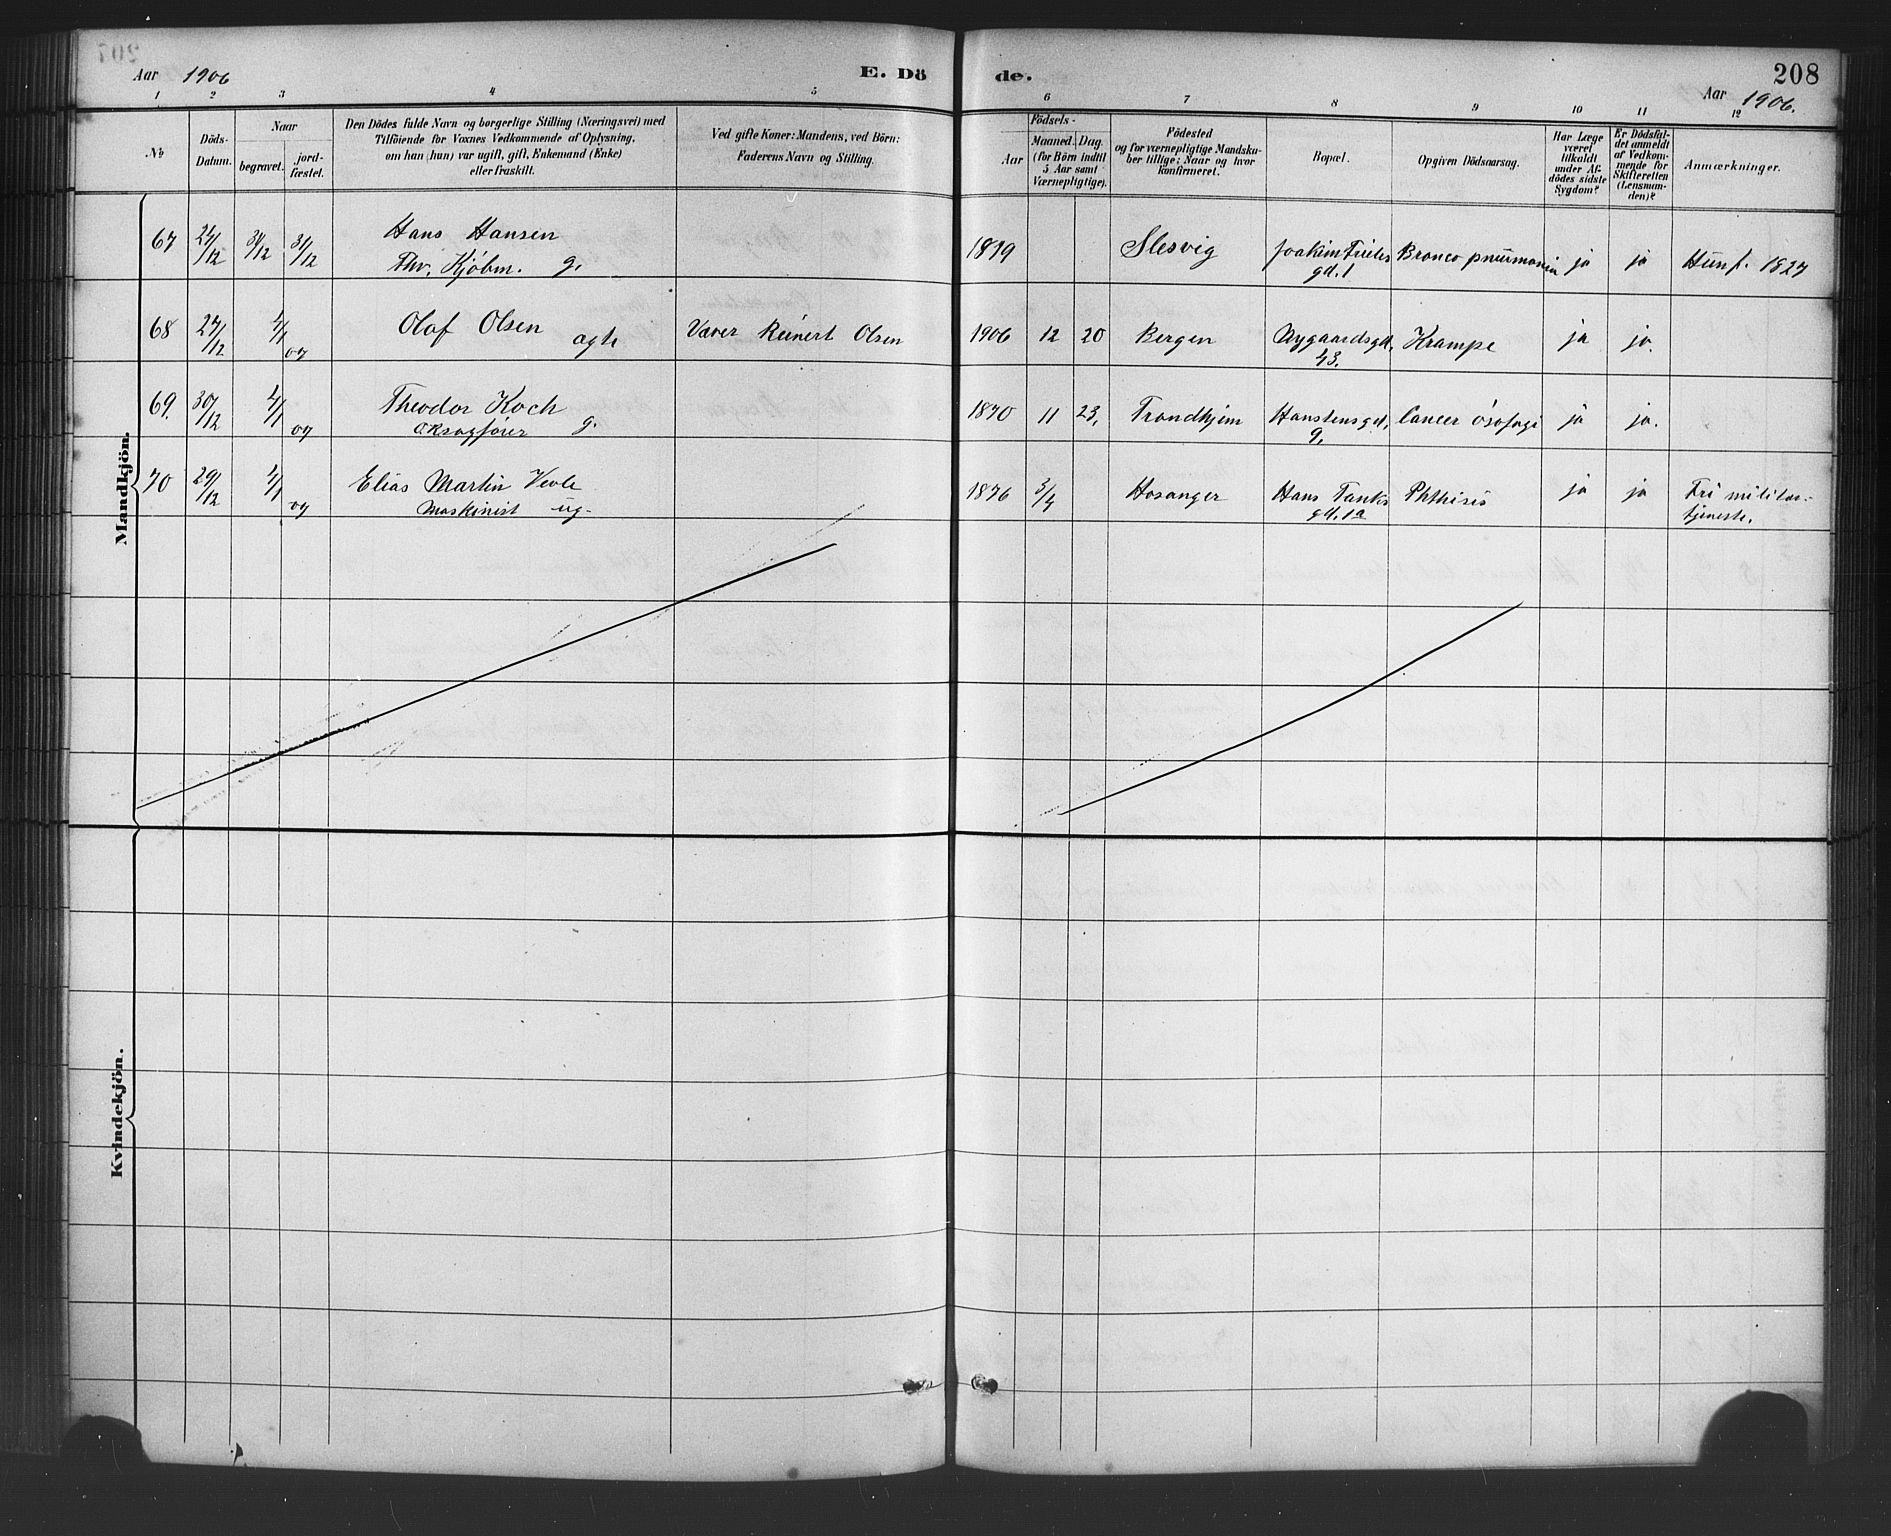 Aar 1906
E. Dö
de.
208
Aar 1906.
1 2 3 4 5 6 7 8 9 10 11 12
No
Döds-
Datum.
Naar
begravet.
jord-
fæstet.
Den Dödes fulde Navn og borgerlige Stilling (Næringsvei) med
Tilföiende for Voxnes Vedkommende af Oplysning,
om han (hun) var ugift, gift, Enkemand (Enke)
eller fraskilt.
Ved gifte Koner: Mandens, ved Börn:
Faderens Navn og Stilling.
Födsels-
Aar
Maaned. Dag.
(for Börn indtil
5 Aar samt
Værnepligtige).
Födested
og for værnepligtige Mandska-
ber tillige: Naar og hvor
konfirmeret.
Bopæl.
Opgiven Dödsaarsag.
Har Læge
været
tilkaldt
under Af-
dödes sidste
Sygdom?
Er Dödsfal-
det anmeldt
af Vedkom-
mende for
Skifteretten
(Lensman-
den)?
Anmærkninger.
Mandkjön.
67 24/12 31/12 31/12 Hans Hansen
Thv. Kjöbm. g.
1899 Slesvig Joakim Frieles
gd. 1
Bronco pneumonia ja ja
68 27/12 4/1 07 Olaf Olsen ægte Varer Reinert Olsen 1906 12 20 Bergen Nygaardsgd.
43.
Krampe ja ja.
69. 30/12 4/1 07 Theodor Koch
g.
1870 11 23. Trondhjem Hanstensgd.
9.
Cancer ösofagi ja ja.
70 29/12 4/1 07 Elias Martin
Maskinist ug.
1876 3/4 Hosanger Hans Tanks
gd. 1a
Phthisis ja ja Fri militær-
tjeneste.
Kvindekjön.